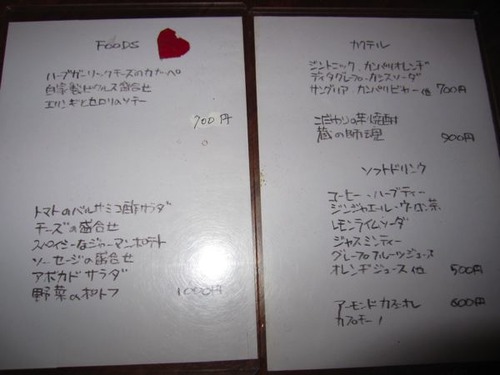 FOODS
ハーブガーリックチーズのカナッペ
自家製ピクルス盛合せ
エリンギとセロリのソテー
700円
トマトのバルサミコ酢サラダ
チーズの盛合せ
スパイシーなジャーマンポテト
ソーセージの盛合せ
アボカドサラダ
野菜の和トフ 1000円
カクテル
ジントニック.カンパリオレンジ
ディタグレフル.カシスソーダ
サングリア.カンパリビアー 他 700円
こだわりの芋焼酎
蔵の師魂 900円
ソフトドリンク
コーヒー・ハーブティー
ジンジャエール・ウーロン茶
レモンライムソーダ
ジャスミンティー
グレープフルーツジュース
オレンジジュース 他 500円
アーモンドカフェオレ 600円
カプチーノ